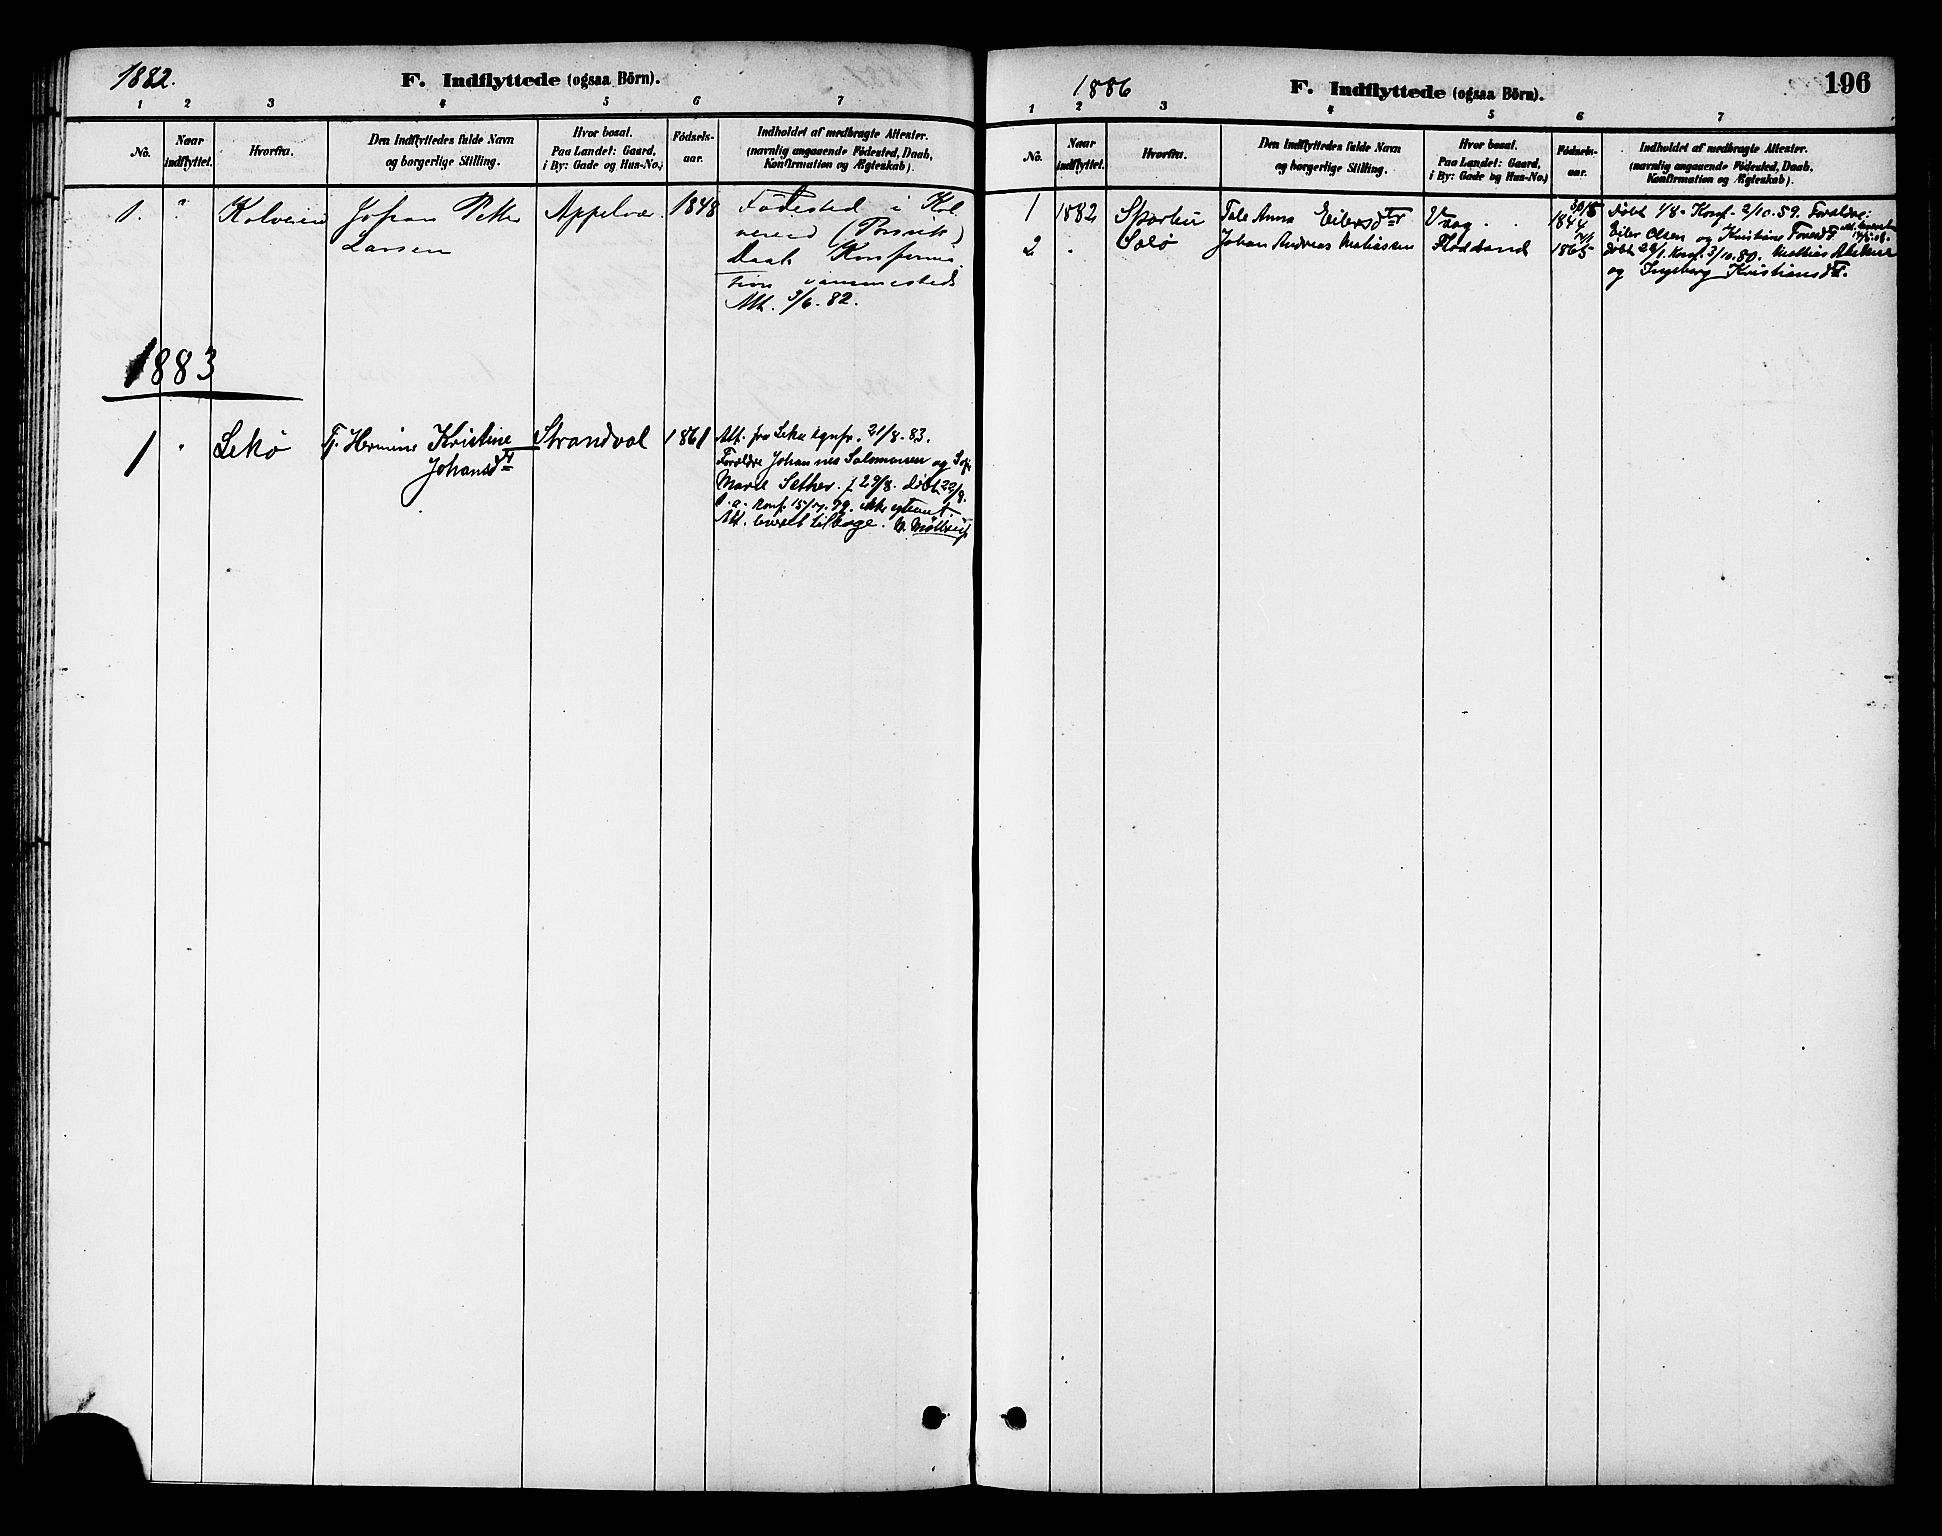 1882.
F. Indflyttede (ogsaa Börn).
1 2 3 4 5 6 7
No.
Naar indflyttet.
Hvorfra.
Den Indflyttedes fulde Navn
og borgerlige Stilling.
Hvor bosat.
Paa Landet: Gaard,
i By: Gade og Hus-No.;
Födsels-
aar.
Indholdet af medbragte Attester.
(navnlig angaaende Födested, Daab,
Konfirmation og Ægteskab).
1. " Kolverei Johan Petter Appelvæ. 1848 Födested i Kol
Larsen vereid
Daab Konfirma
tion sammesteds
Att. 3/6. 82.
1883
1 " Lekø Hermine Kristine Strandval 1861 Att. fra Leka 21/8. 83.
Johansdtr Forældre Johannes Salomonsen og
29/8. døbt 22/9.
Konf. 15/
Att. leveret tilbage.
196
1886
F. Indflyttede (ogsaa Börn).
1 2 3 4 5 6 7
No.
Naar
indflyttet.
Hvorfra.
Den Indflyttedes fulde Navn
og borgerlige Stilling.
Hvor bosat.
Paa Landet: Gaard,
i By: Gade og Hus-No.;
Födsels-
aar.
Indholdet af medbragte Attester.
(navnlig angaaende Födested, Daab,
Konfirmation og Ægteskab).
1 1882 Sparbu Tale Anna Eilersdtr Vaag. 1844 døbt 1/8. Konf. 2/10. 59. Forældre:
Eiler Olsen og Kristiane
2 . Sælø Johan Andreas Matiassen Flodsand 1865 døbt 29/1. Konf. 3/10. 80. Mathias
og Ingeborg Kristiansdtr.